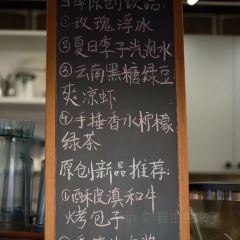 原创饮品:
①玫瑰浮水
②夏日李子汽泡水
③云南黑糖绿豆
爽凉虾
④手捶香水柠檬
绿茶
原创新品推荐:
①酥皮滇和牛
烤包子